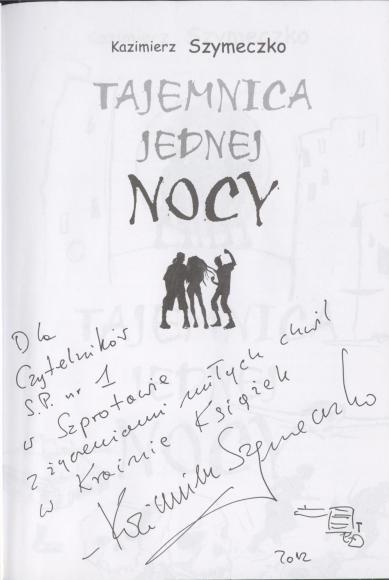 Kazimierz Szymeczko
TAJEMNICA
JEDNEJ
NOCY
Dla
Czytelników
S.P. nr 1
w Szprotawie
z życzeniami miłych chwil
w Krainie Książek
Kazimierz Szymeczko
2012